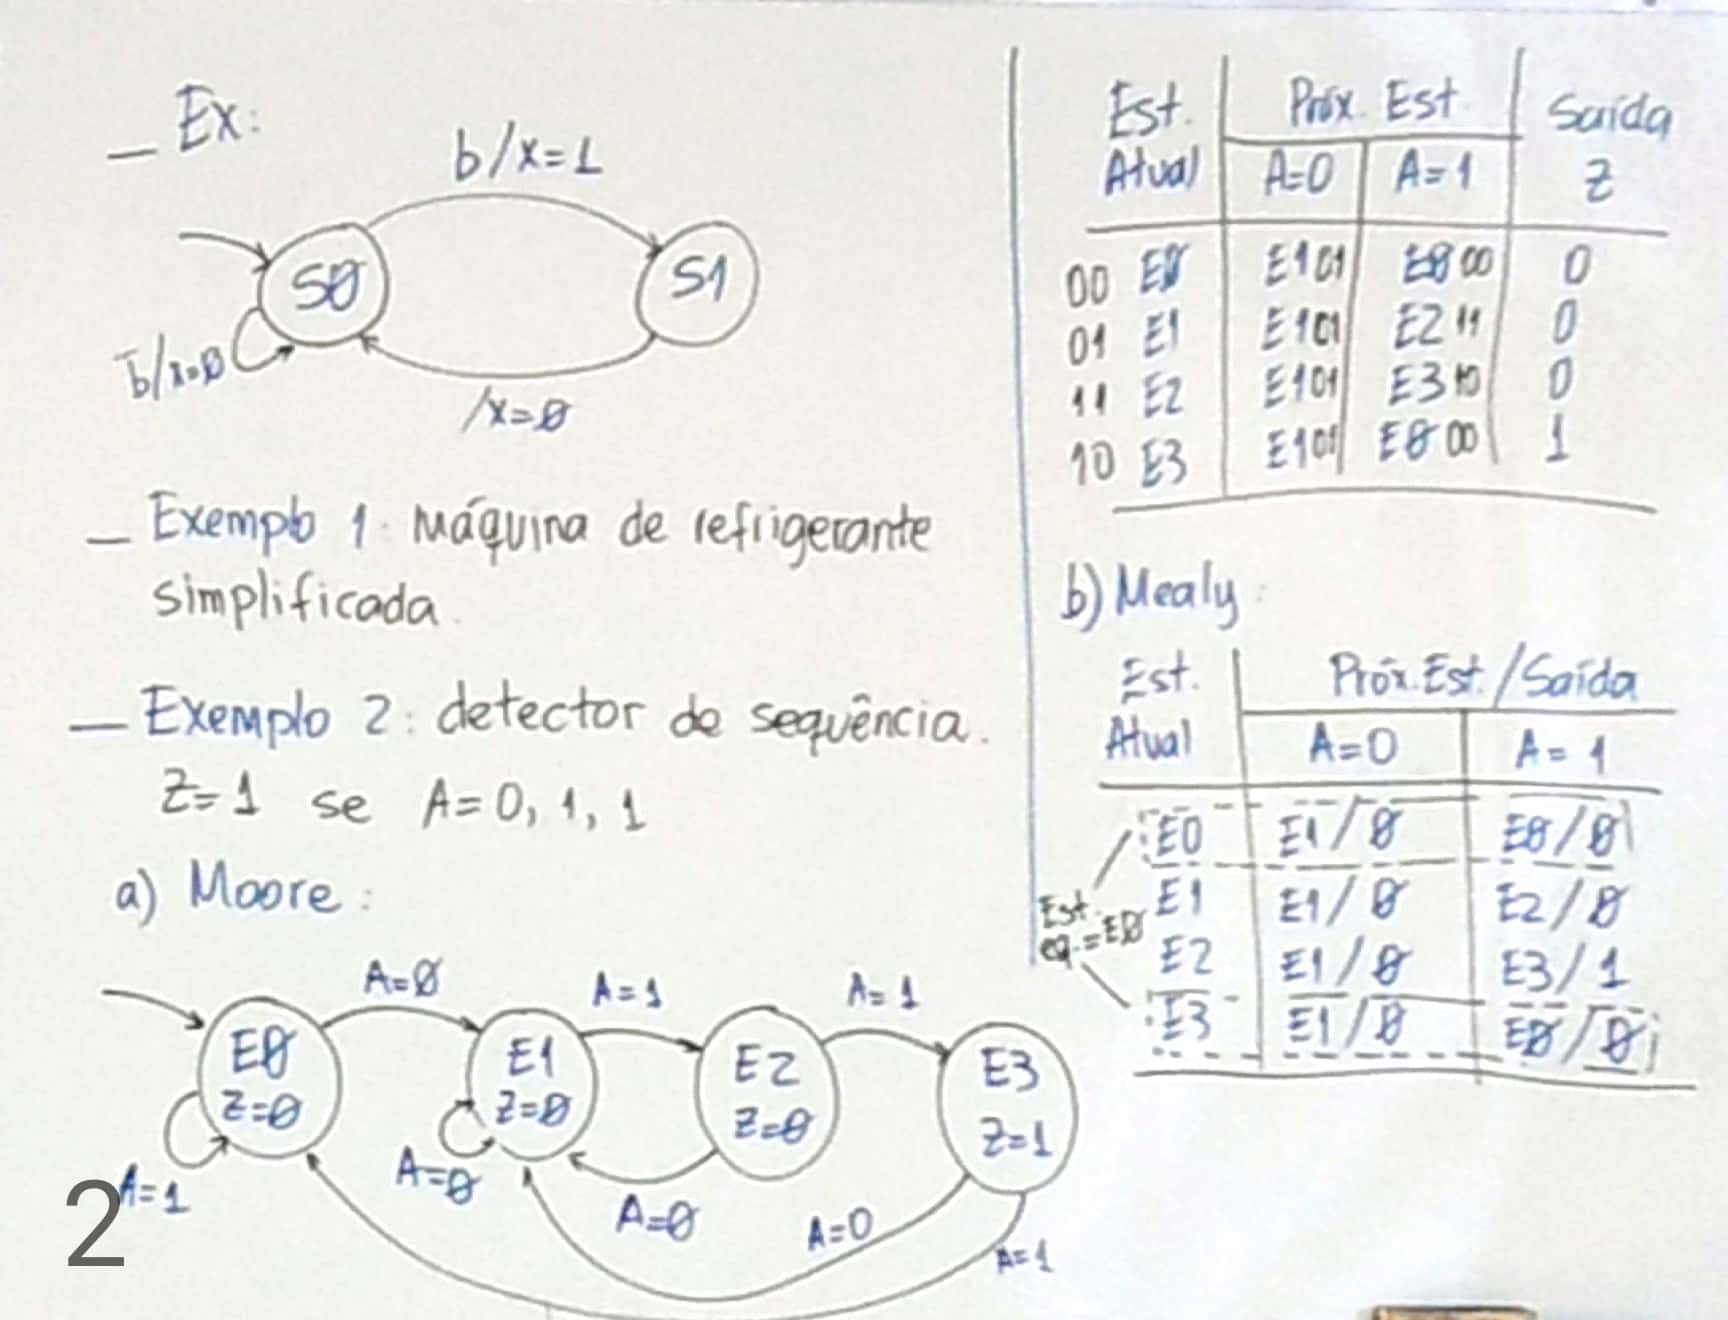 — Ex:
b/x=1
S0
S1
b̅/x=0
/x=0
— Exemplo 1: máquina de refrigerante
simplificada.
— Exemplo 2: detector de sequência.
Z=1 se A=0, 1, 1
a) Moore:
A=0
A=1
A=1
E0
Z=0
E1
Z=0
E2
Z=0
E3
Z=1
A=1
A=0
A=0
A=0
A=1
2
Est. Próx. Est. Saída
Atual A=0 A=1 Z
00 E0 E1 01 E0 00 0
01 E1 E1 01 E2 11 0
11 E2 E1 01 E3 10 0
10 E3 E1 01 E0 00 1
b) Mealy:
Est. Próx. Est. / Saída
Atual A=0 A=1
E0 E1/0 E0/0
E1 E1/0 E2/0
E2 E1/0 E3/1
E3 E1/0 E0/0
Est.
eq.=E0